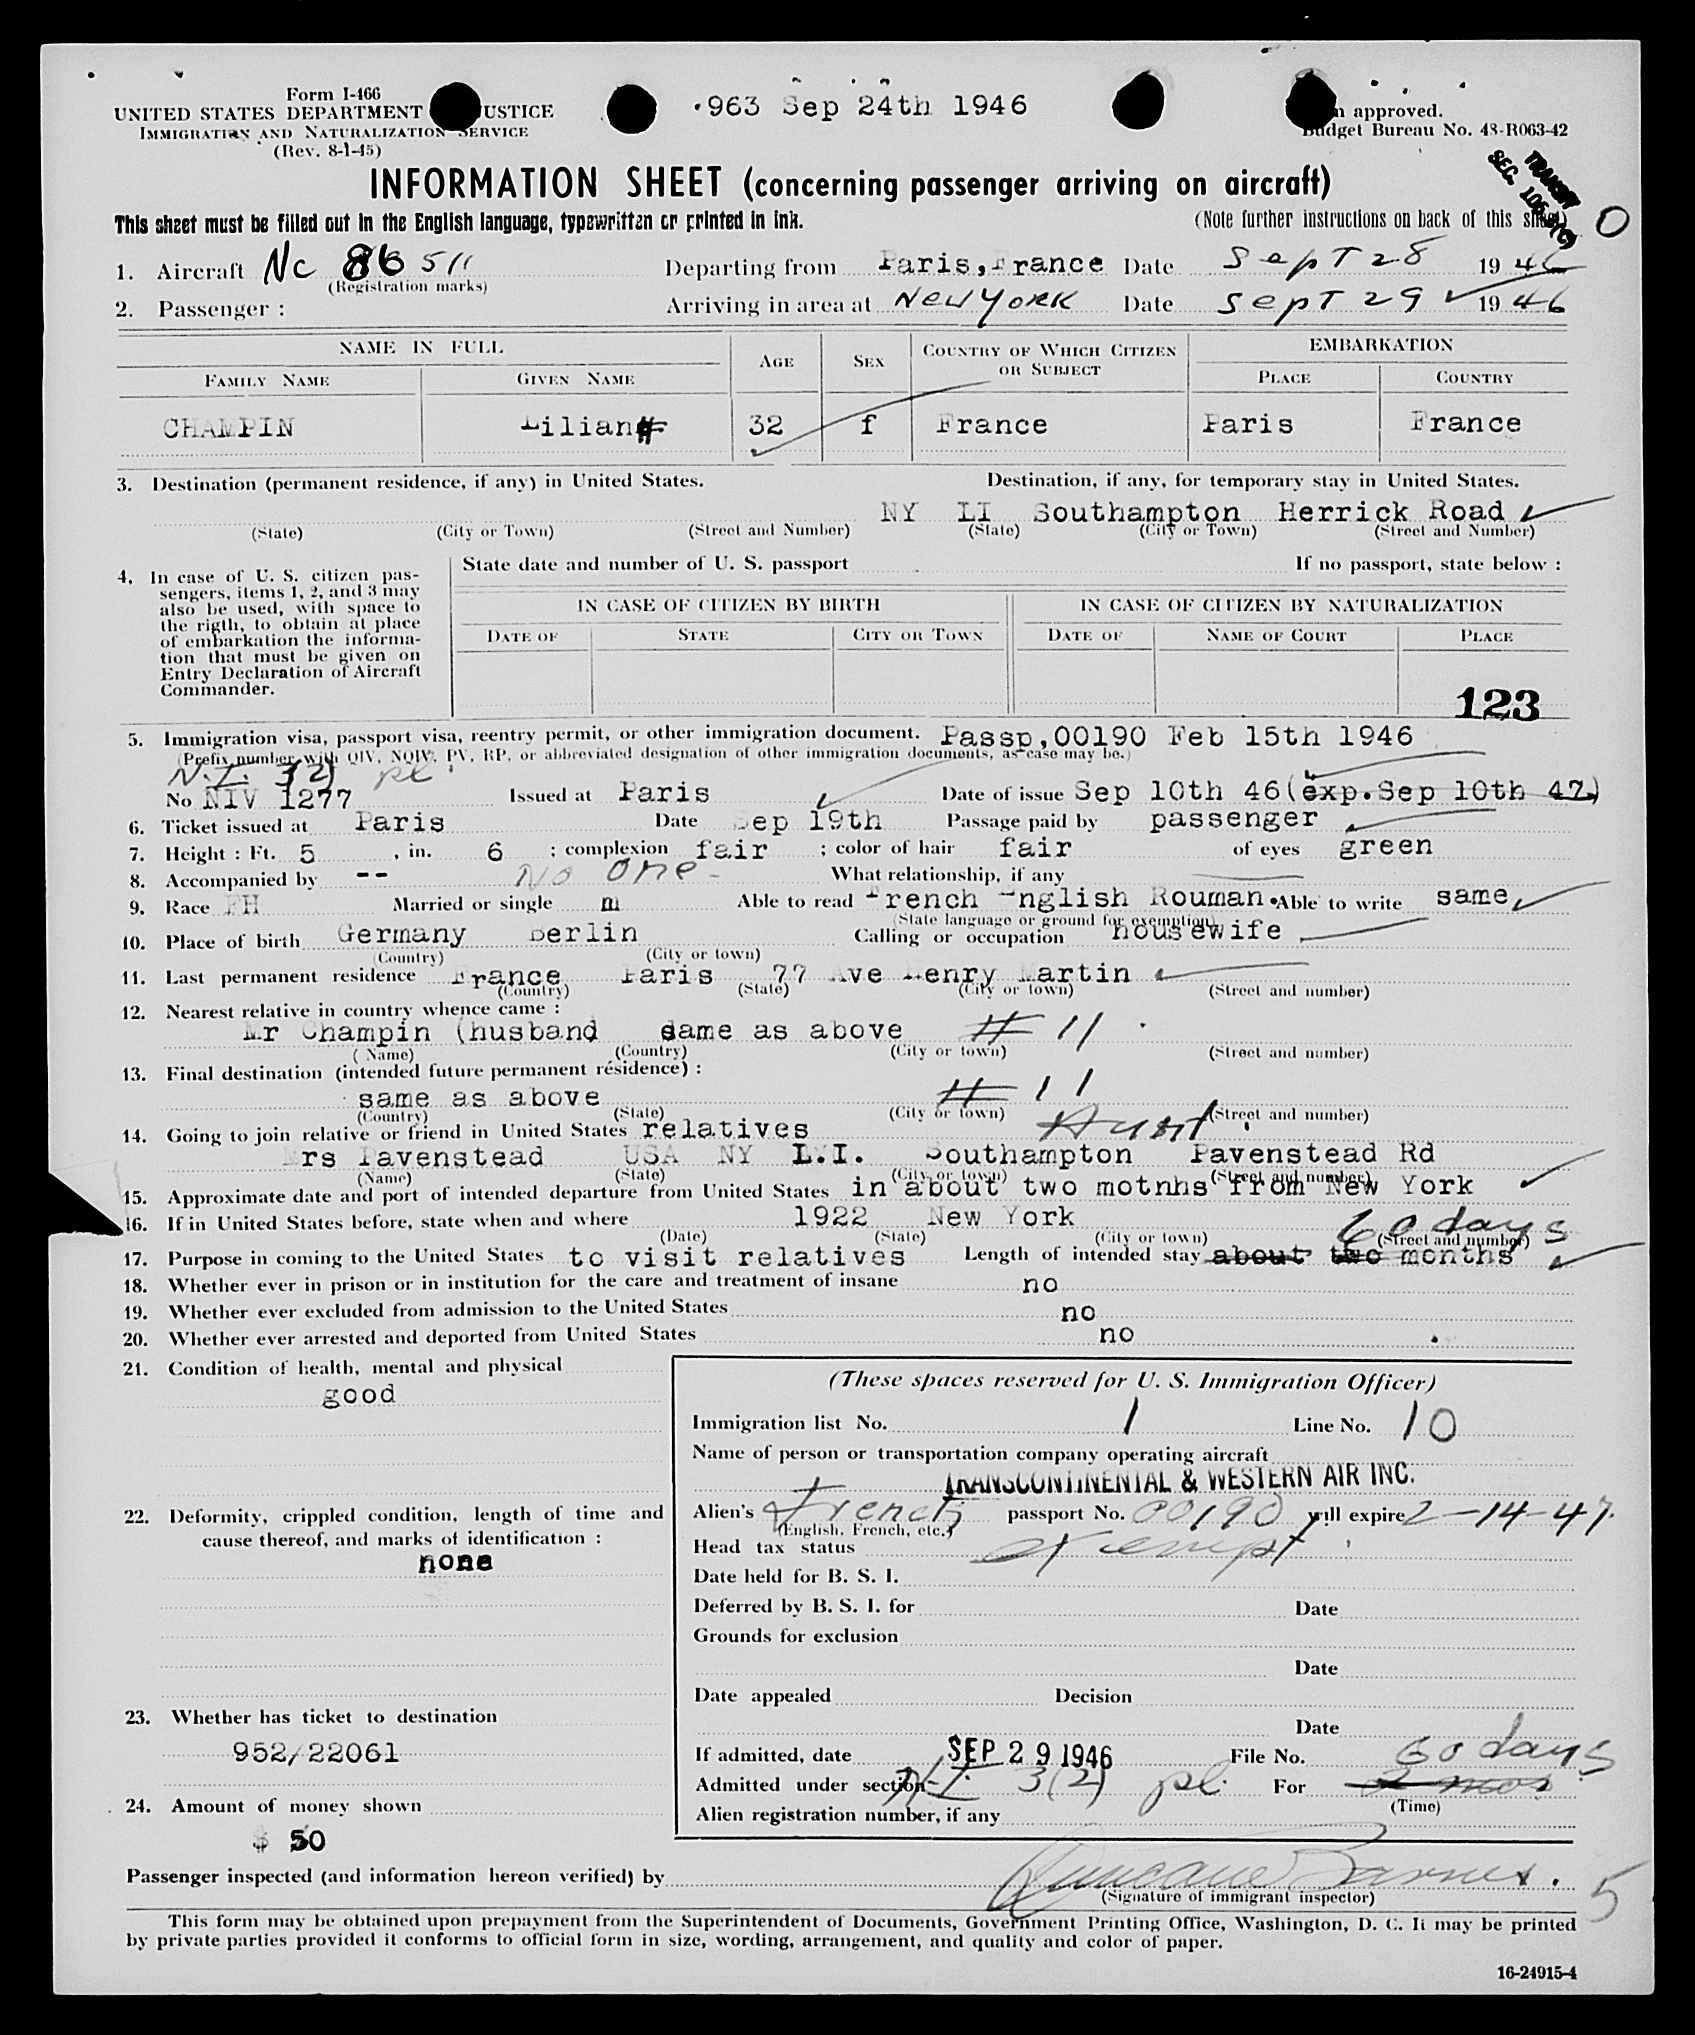 Form I-466
UNITED STATES DEPARTMENT USTICE
IMMIGRATION AND NATURALIZATION SERVICE
(Rev. 8-1-45)
963 Sep 24th 1946
approved.
Budget Bureau No. 43-R063-42
TRANSIT
SEC.
INFORMATION SHEET (concerning passenger arriving on aircraft)
This sheet must be filled out in the English language, typewritten or printed in ink.
(Note further instructions on back of this sheet) O
1. Aircraft NC 86511 Departing from Paris, France Date SepT 28 1946
(Registration marks)
2. Passenger : Arriving in area at New York Date SepT 29 1946
NAME IN FULL AGE SEX COUNTRY OF WHICH CITIZEN OR SUBJECT EMBARKATION
FAMILY NAME GIVEN NAME PLACE COUNTRY
CHAMPIN Lilian 32 f France Paris France
3. Destination (permanent residence, if any) in United States. Destination, if any, for temporary stay in United States.
NY LI Southampton Herrick Road
(State) (City or Town) (Street and Number) (State) (City or Town) (Street and Number)
4. In case of U. S. citizen pas-
sengers, items 1, 2, and 3 may
also be used, with space to
the rigth, to obtain at place
of embarkation the informa-
tion that must be given on
Entry Declaration of Aircraft
Commander.
State date and number of U. S. passport If no passport, state below :
IN CASE OF CITIZEN BY BIRTH IN CASE OF CITIZEN BY NATURALIZATION
DATE OF STATE CITY OR TOWN DATE OF NAME OF COURT PLACE
123
5. Immigration visa, passport visa, reentry permit, or other immigration document. Passp,00190 Feb 15th 1946
(Prefix number with QIV, NQIV, PV, RP, or abbreviated designation of other immigration documents, as case may be.)
N.I. 3(2) pl
No NIV 1277 Issued at Paris Date of issue Sep 10th 46(exp.Sep 10th 47)
6. Ticket issued at Paris Date Sep 19th Passage paid by passenger
7. Height : Ft. 5 , in. 6 ; complexion fair ; color of hair fair of eyes green
8. Accompanied by -- No one - What relationship, if any
9. Race FH Married or single m Able to read French English Rouman. Able to write same
(State language or ground for exemption)
10. Place of birth Germany Berlin Calling or occupation housewife
(Country) (City or town)
11. Last permanent residence France Paris 77 Ave Henry Martin
(Country) (State) (City or town) (Street and number)
12. Nearest relative in country whence came :
Mr Champin (husband same as above # 11
(Name) (Country) (City or town) (Street and number)
13. Final destination (intended future permanent résidence) :
same as above # 11
(Country) (State) (City or town) (Street and number)
14. Going to join relative or friend in United States relatives Aunt
Mrs Pavenstead USA NY L.I. Southampton Pavenstead Rd
(Name) (State) (City or town) (Street and number)
15. Approximate date and port of intended departure from United States in about two motnhs from New York
16. If in United States before, state when and where 1922 New York
(Date) (State) (City or town) (Street and number)
60 days
17. Purpose in coming to the United States to visit relatives Length of intended stay about two months
18. Whether ever in prison or in institution for the care and treatment of insane no
19. Whether ever excluded from admission to the United States no
20. Whether ever arrested and deported from United States no
21. Condition of health, mental and physical
good
22. Deformity, crippled condition, length of time and
cause thereof, and marks of identification :
none
23. Whether has ticket to destination
952/22061
24. Amount of money shown
$ 50
(These spaces reserved for U. S. Immigration Officer)
Immigration list No. 1 Line No. 10
Name of person or transportation company operating aircraft
TRANSCONTINENTAL & WESTERN AIR INC.
Alien's French passport No. 00190 will expire 2-14-47.
(English, French, etc.)
Head tax status exempt
Date held for B. S. I.
Deferred by B. S. I. for Date
Grounds for exclusion
Date
Date appealed Decision
Date
If admitted, date SEP 29 1946 File No. 60 days
Admitted under section N.I. 3(2) pl. For 2 mos
(Time)
Alien registration number, if any
Passenger inspected (and information hereon verified) by
(Signature of immigrant inspector)
5
This form may be obtained upon prepayment from the Superintendent of Documents, Government Printing Office, Washington, D. C. It may be printed
by private parties provided it conforms to official form in size, wording, arrangement, and quality and color of paper.
16-24915-4